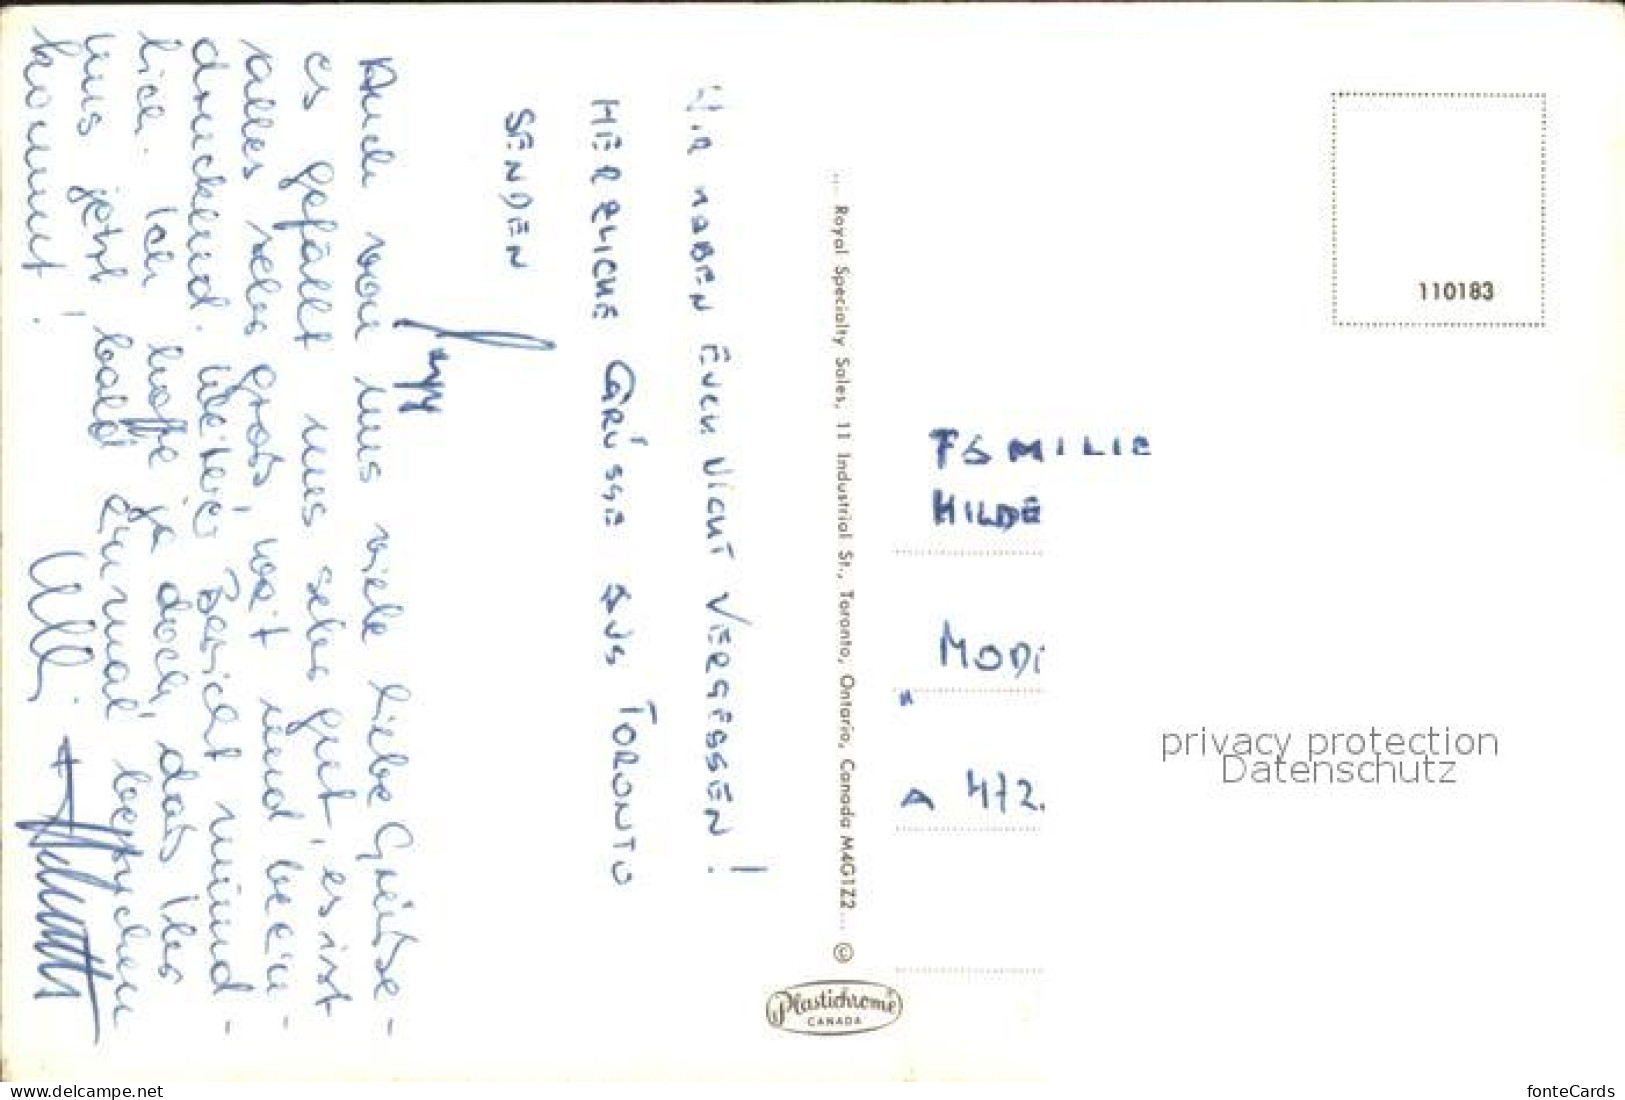 WIR HABEN EUCH NICHT VERGESSEN!
HERZLICHE GRÜSSE AUS TORONTO
SENDEN
Auch von uns viele liebe Grüsse -
es gefällt uns sehr gut, es ist
alles sehr gross, weit und beein-
druckend. Weiterer Bericht münd-
lich. Ich hoffe ja doch, dass Ihr
uns jetzt bald einmal besuchen
kommt!
Ulli
... Royal Specialty Sales, 11 Industrial St., Toronto, Ontario, Canada M4G1Z2 ... ©
Plastichrome®
CANADA
110183
FAMILIE
HILDE
MODI
A 472.
privacy protection
Datenschutz
www.delcampe.net
fonteCards